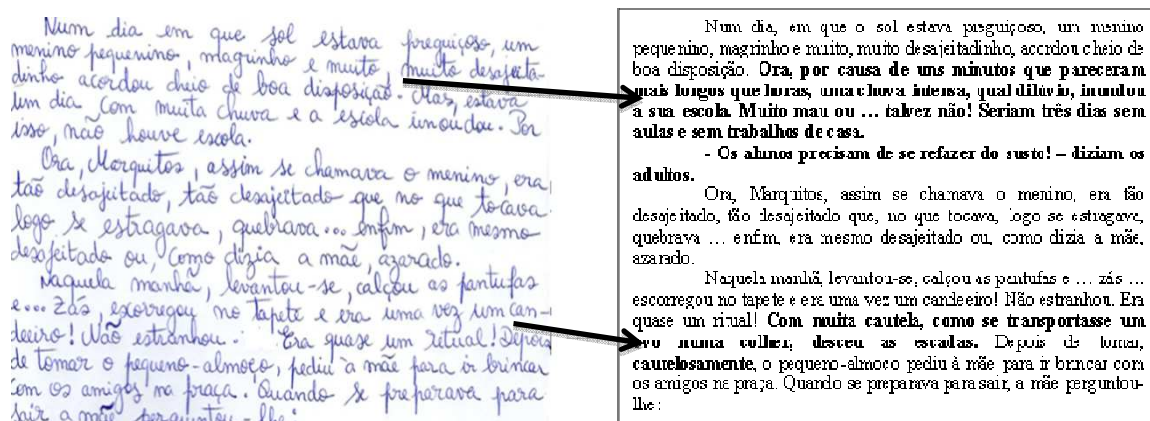 Num dia em que sol estava preguiçoso, um
menino pequenino, magrinho e muito, muito desajeita-
dinho acordou cheio de boa disposição. Mas, estava
um dia com muita chuva e a escola inoudou. Por
isso, não houve escola.
Ora, Marquitos, assim se chamava o menino, era
tão desajeitado, tão desajeitado que no que tocava
logo se estragava, quebrava... enfim, era mesmo
desajeitado ou, como dizia a mãe, azarado.
Naquela manhã, levantou-se, calçou as pantufas
e... Zás, escorregou no tapete e era uma vez um can-
deeiro! Não estranhou. Era quase um ritual! Depois
de tomar o pequeno-almoço, pediu à mãe para ir brincar
com os amigos na praça. Quando se preparava para
sair a mãe perguntou-lhe:
Num dia, em que o sol estava preguiçoso, um menino
pequenino, magrinho e muito, muito desajeitadinho, acordou cheio de
boa disposição. Ora, por causa de uns minutos que pareceram
mais longos que horas, uma chuva intensa, qual dilúvio, inundou
a sua escola. Muito mau ou ... talvez não! Seriam três dias sem
aulas e sem trabalhos de casa.
- Os alunos precisam de se refazer do susto! – diziam os
adultos.
Ora, Marquitos, assim se chamava o menino, era tão
desajeitado, tão desajeitado que, no que tocava, logo se estragava,
quebrava ... enfim, era mesmo desajeitado ou, como dizia a mãe,
azarado.
Naquela manhã, levantou-se, calçou as pantufas e ... zás ...
escorregou no tapete e era uma vez um candeeiro! Não estranhou. Era
quase um ritual! Com muita cautela, como se transportasse um
ovo numa colher, desceu as escadas. Depois de tomar,
cautelosamente, o pequeno-almoço pediu à mãe para ir brincar com
os amigos na praça. Quando se preparava para sair, a mãe perguntou-
lhe: